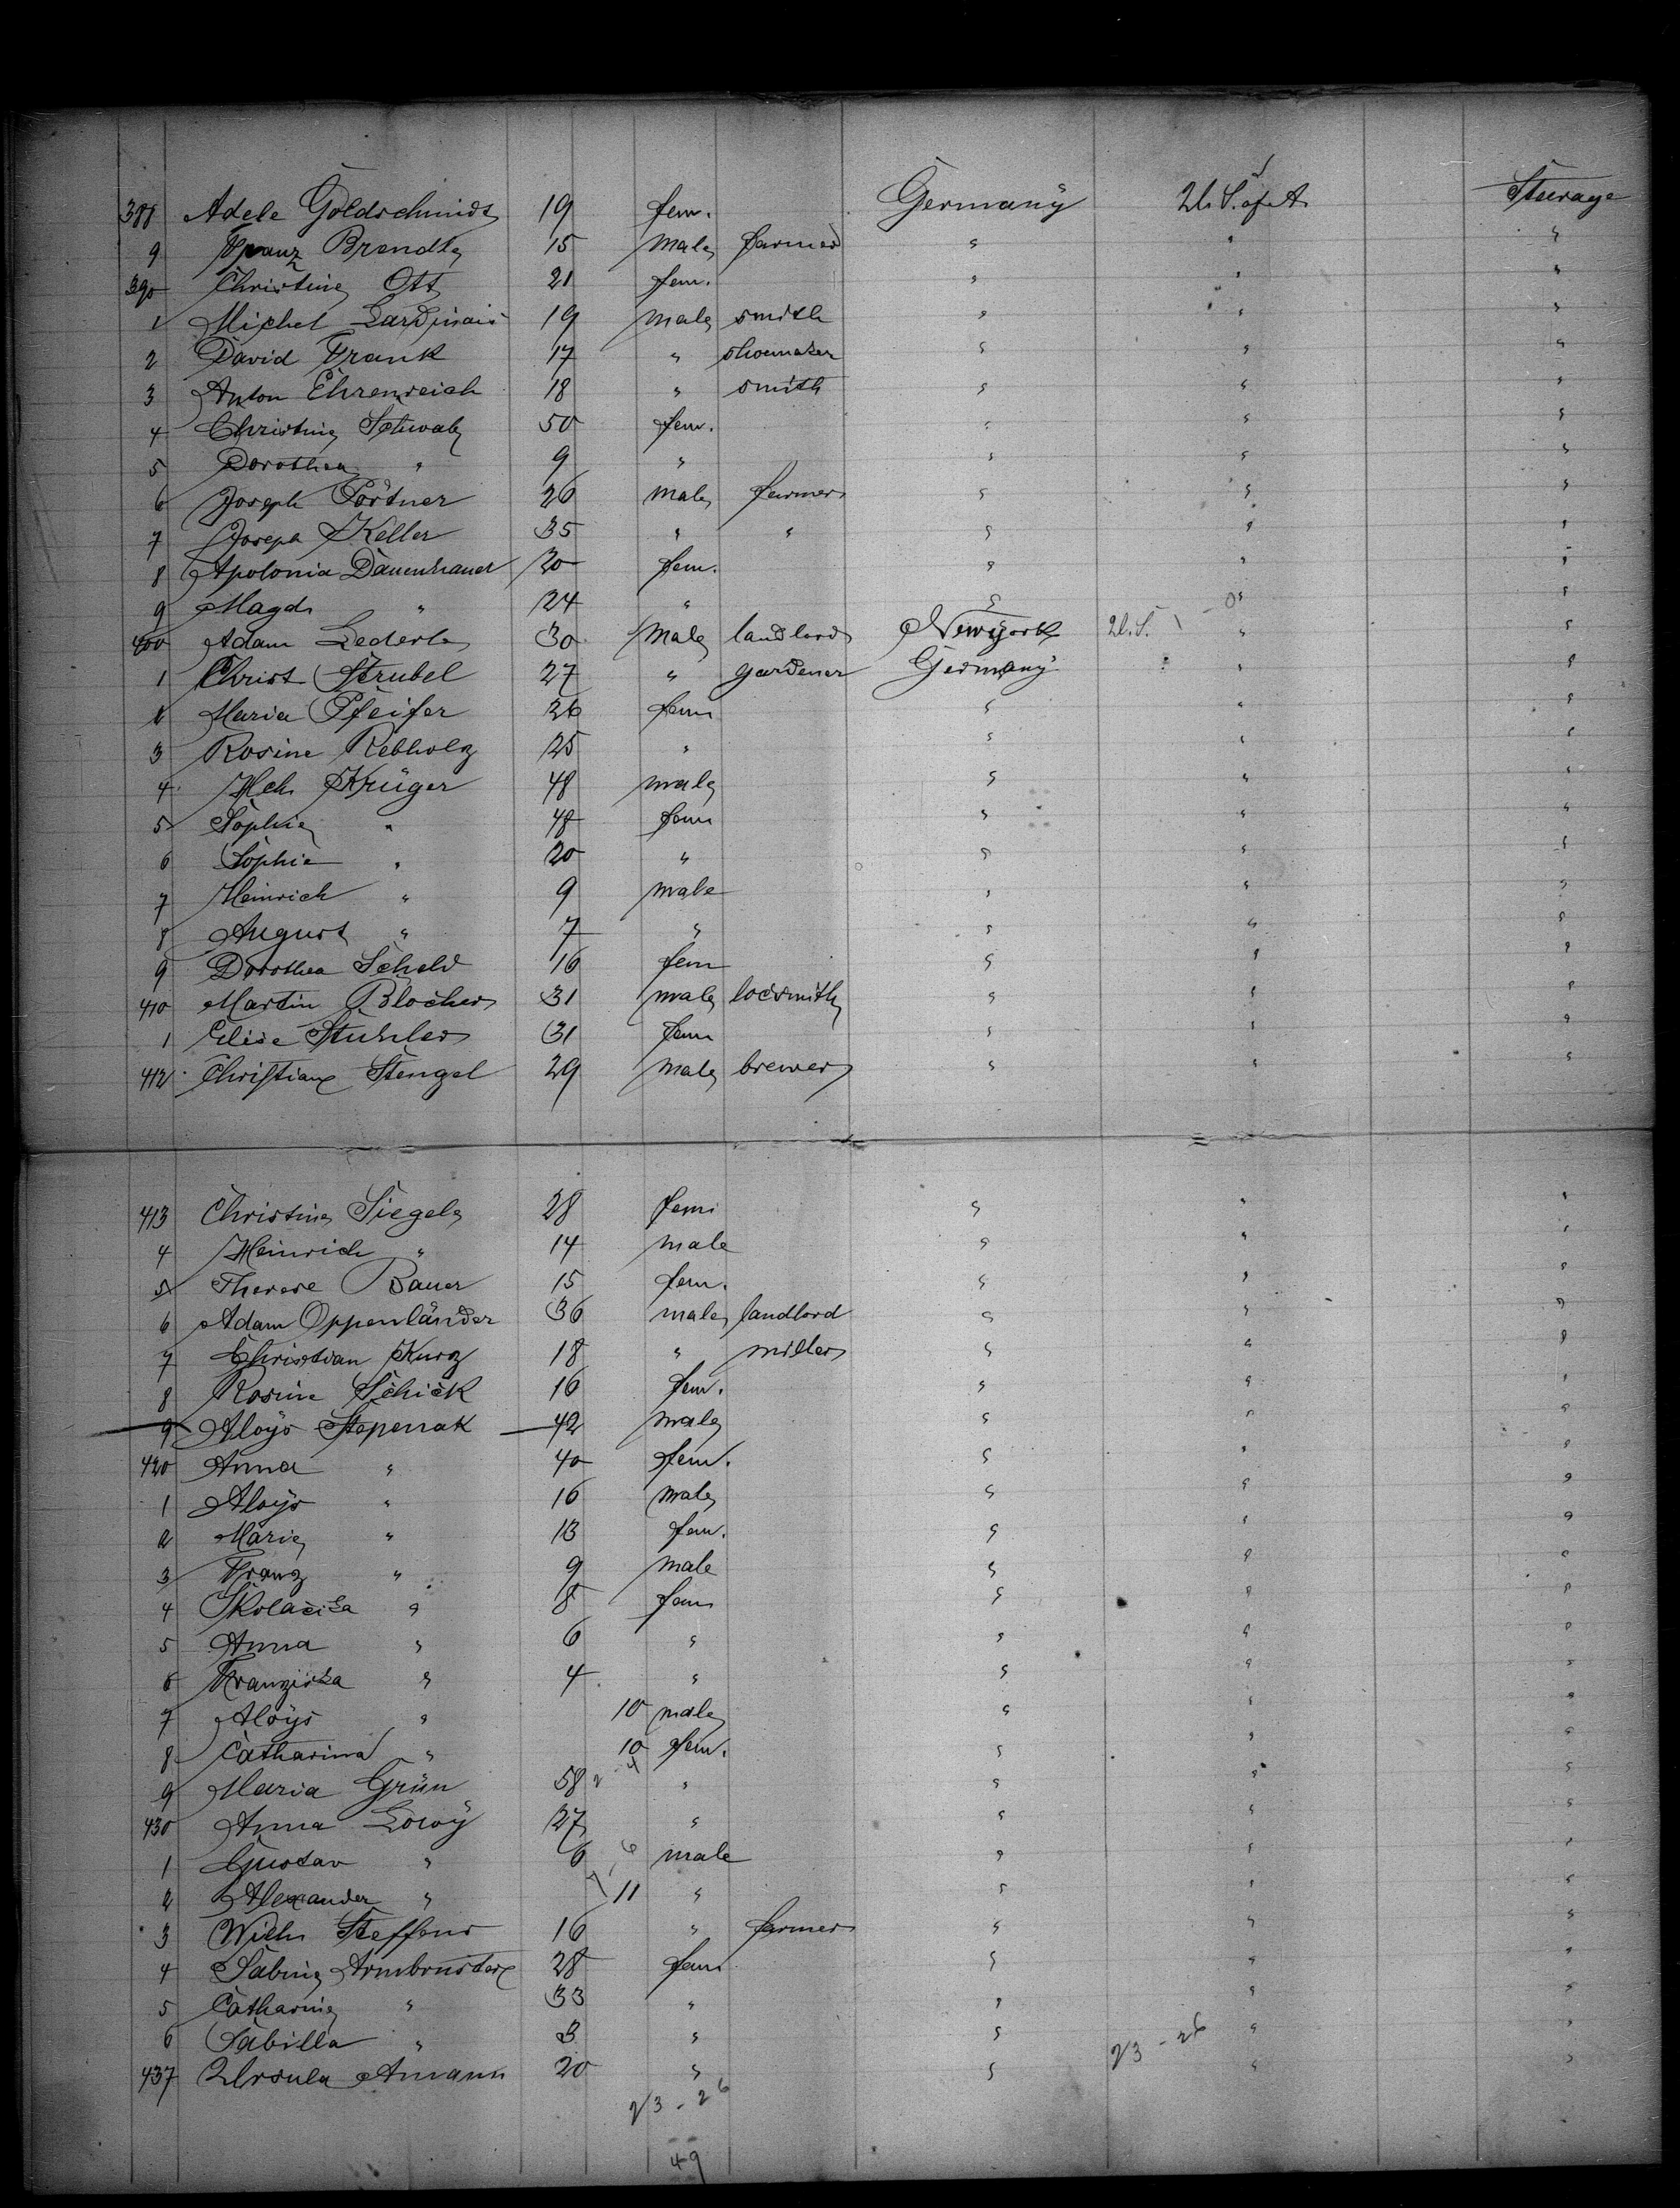 388 Adele Goldschmidt 19 fem. Germany U. S. of A. Steerage
9 Franz Brendle 15 male farmer " " "
390 Christine Ott 21 fem. " " "
1 Michel Lardinais 19 male smith " " "
2 David Frank 17 " shoemaker " " "
3 Anton Ehrenreich 18 " smith " " "
4 Christine Schwab 50 fem. " " "
5 Dorothea " 9 " " " "
6 Joseph Portner 26 male farmer " " "
7 Joseph Keller 35 " " " " "
8 Apolonia Dauenhauer 20 fem. " " "
9 Magd. " 24 " " " "
400 Adam Lederle 30 male landlord Newyork U. S. " "
1 Christ Strubel 27 " gardener Germany " "
2 Maria Pfeifer 26 fem " " "
3 Rosine Rebholz 25 " " " "
4 Hch Krüger 48 male " " "
5 Sophie " 48 fem " " "
6 Sophie " 20 " " " "
7 Heinrich " 9 male " " "
8 August " 7 " " " "
9 Dorothea Scheld 16 fem " " "
410 Martin Blocher 31 male locksmith " " "
1 Elise Stuhler 31 fem " " "
412 Christian Stengel 29 male brewer " " "
413 Christine Siegele 28 fem " " "
4 Heinrich " 14 male " " "
5 Therese Bauer 15 fem. " " "
6 Adam Oppenländer 36 male landlord " " "
7 Christian Kurz 18 " miller " " "
8 Rosine Schick 16 fem. " " "
9 Aloys Stepenak 42 male " " "
420 Anna " 40 fem. " " "
1 Aloys " 16 male " " "
2 Marie " 13 fem. " " "
3 Franz " 9 male " " "
4 Skolacika " 8 fem " " "
5 Anna " 6 " " " "
6 Franziska " 4 " " " "
7 Aloys " 10 male " " "
8 Catharina " 10 fem. " " "
9 Maria Grün 58 " " " "
430 Anna Lowy 27 " " " "
1 Gustav " 6 male " " "
2 Alexander " 11 " " " "
3 Wilh Steffens 16 " farmer " " "
4 Sabine Armbruster 28 fem " " "
5 Catharine " 33 " " " "
6 Sabilla " 3 " " " "
437 Ursula Amann 20 " " " "
23 - 26
23 - 26
49